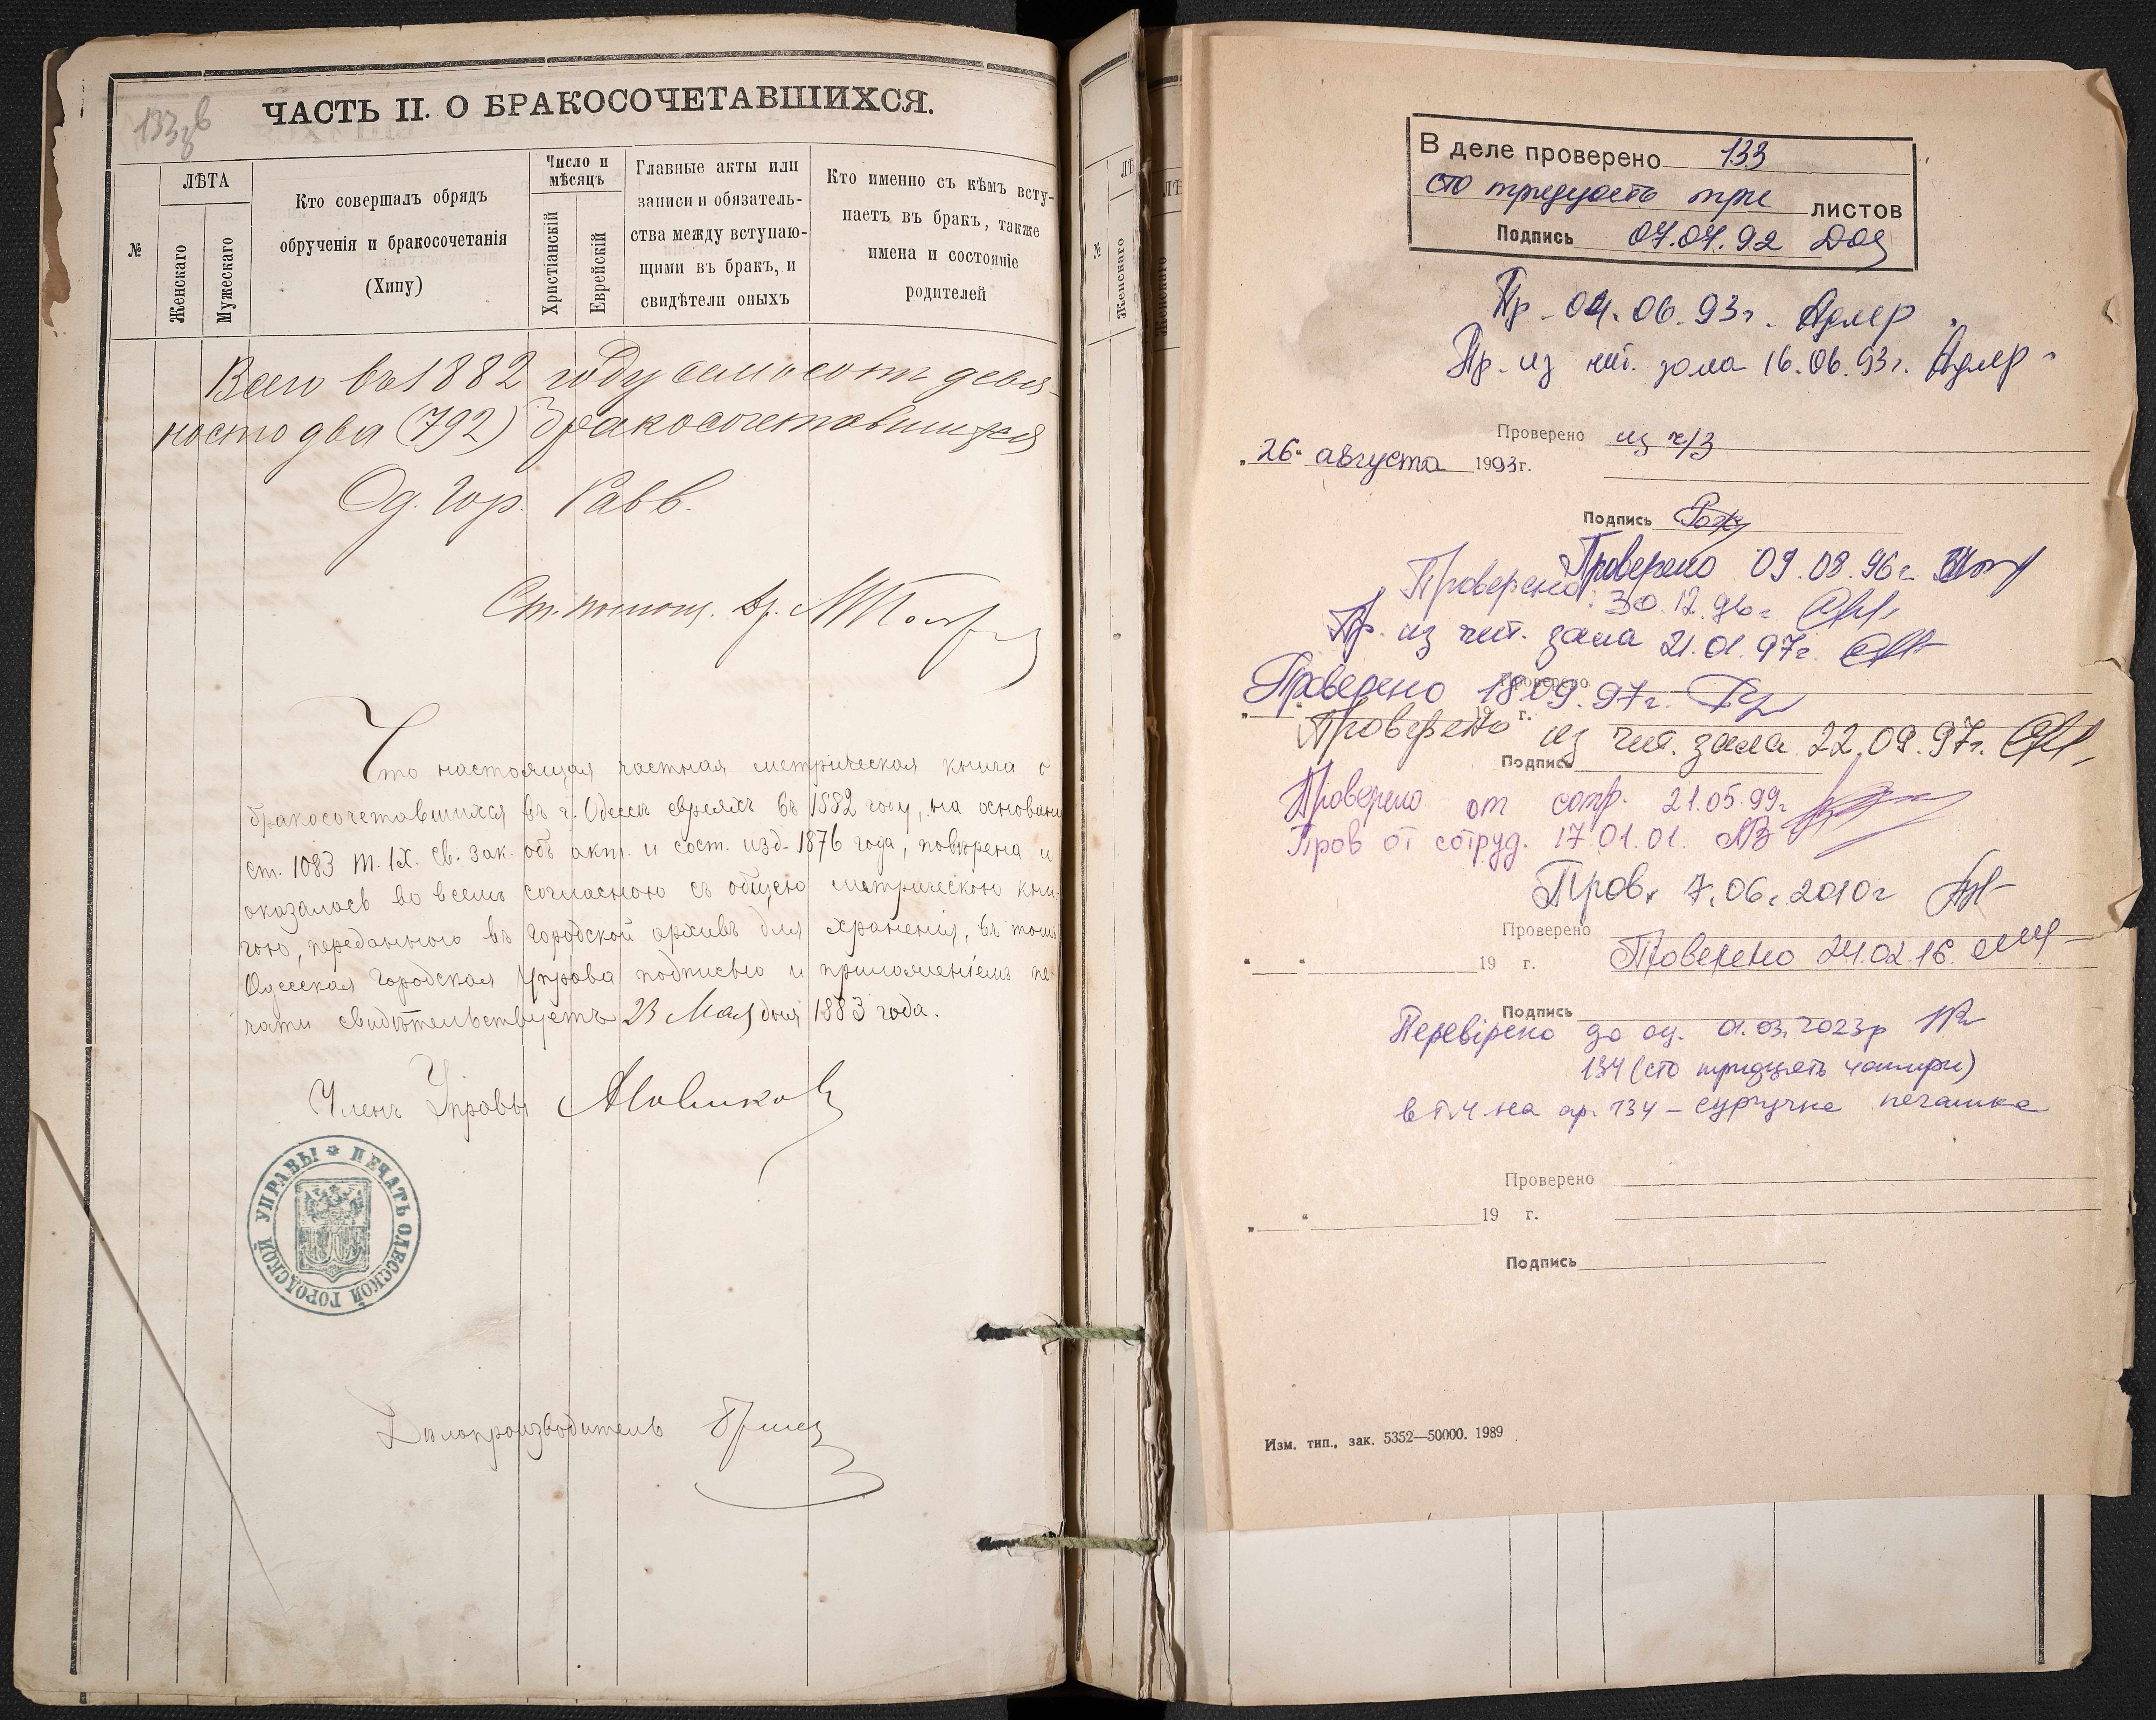 133 в
ЧАСТЬ II. О БРАКОСОЧЕТАВШИХСЯ.
№
ЛѢТА
Женскаго
Мужескаго
Кто совершалъ обрядъ
обрученія и бракосочетанія
(Хипу)
Число и
мѣсяцъ
Христіанскій
Еврейскій
Главные акты или
записи и обязатель-
ства между вступаю-
щими въ бракъ, и
свидѣтели оныхъ
Кто именно съ кѣмъ всту-
паетъ въ бракъ, также
имена и состояніе
родителей
Всего въ 1882 году семьсотъ девя-
носто два (792) бракосочетавшихся
Од. Гор. Равв.
Ст. помощ. Др.
Что настоящая частная метрическая книга о
бракосочетавшихся въ г. Одессѣ евреяхъ въ 1882 году, на основани
ст. 1083 т. IX. Св. Зак. объ акт. и сост. изд. 1876 года, повѣрена и
оказалась во всемъ согласною съ общею метрическою кни-
гою, переданною въ городской архивъ для храненія, въ томъ
Одесская Городская Управа подписью и приложеніемъ пе-
чати свидѣтельствуетъ 23 Мая дня 1883 года.
Членъ Управы Новиковъ
ПЕЧАТЬ ОДЕССКОЙ ГОРОДСКОЙ УПРАВЫ
Дѣлопроизводитель
№
ЛѢ
Женскаго
ЛѢ
Женскаго
В деле проверено 133
сто тридцать три листов
Подпись 07.07.92
Пр. 04.06.93г. Адлер
Пр. из чит. зала 16.06.93г. Адлер
Проверено из ч/з
„26“ августа 1993г.
Подпись
Проверено 09.08.96г.
Проверено 30.12.96г.
Пр. из чит. зала 21.01.97г.
Проверено
Проверено 18.09.97г.
„ “ 19 г.
Проверено из чит. зала 22.09.97г.
Подпись
Проверено от сотр. 21.05.99г.
Пров от сотруд. 17.01.01.
Пров. 7.06.2010г
Проверено
Проверено 24.02.16.
„ “ 19 г.
Подпись
Перевірено до оц. 01.03.2023р
134 (сто тридцять чотири)
в т.ч. на ар. 134 – сургучна печатка
Проверено
„ “ 19 г.
Подпись
Изм. тип., зак. 5352—50000. 1989